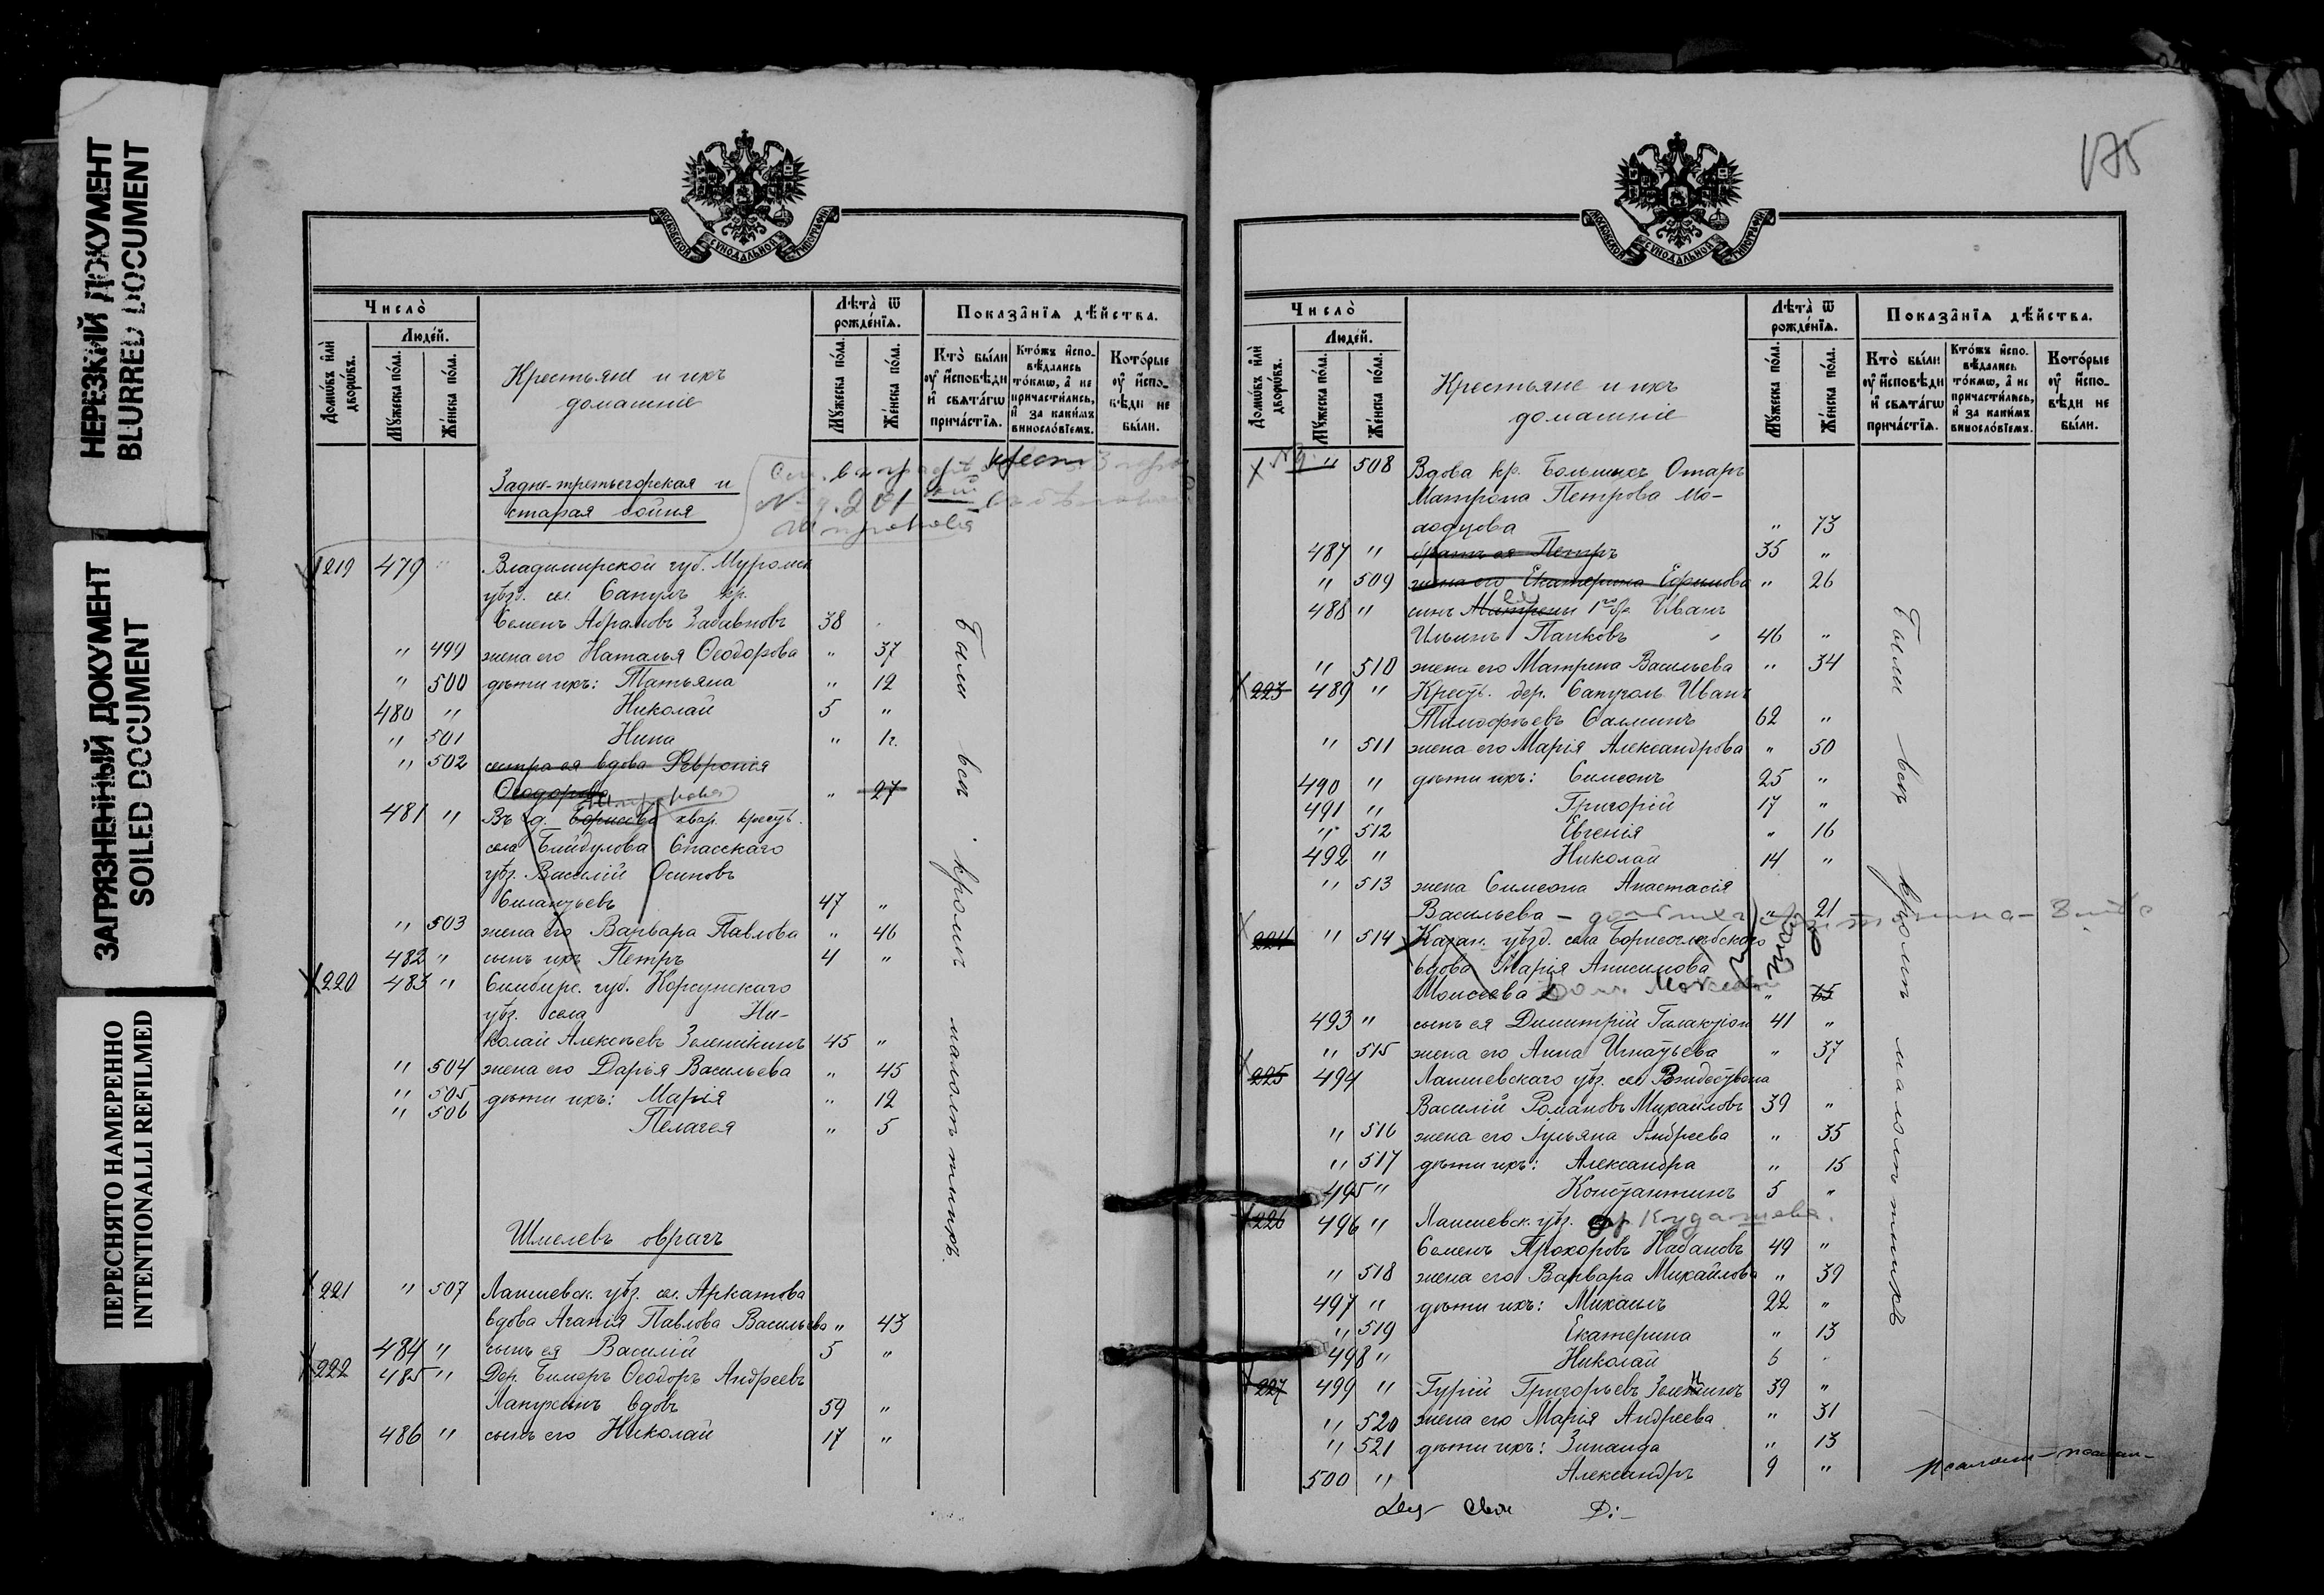 НЕРЕЗКИЙ ДОКУМЕНТ
BLURRED DOCUMENT
ЗАГРЯЗНЕННЫЙ ДОКУМЕНТ
SOILED DOCUMENT
ПЕРЕСНЯТО НАМЕРЕННО
INTENTIONALLI REFILMED
МОСКОВСКОЙ СѴНОДАЛЬНОЙ ТИПОГРАФІИ
Число̀
Людей.
Домѡ́въ и҆лѝ дворѡ́въ.
Мꙋжеска по́ла.
Же́нска по́ла.
Крестьяне и ихъ
домашніе
Лѣта̀ ѿ рожде́нїѧ.
Мꙋжеска по́ла.
Же́нска по́ла.
Показа̑нїѧ дѣ́йства.
Кто̀ бы́ли ᲂу҆ и҆сповѣди и҆ свѧта́гѡ прича́стїѧ.
Кто́жъ и҆спо-вѣдались то́кмѡ, а҆ не причасти́лись, и҆ за каки́мъ винослові́емъ.
Кото́рые ᲂу҆ и҆спо-вѣди не бы́ли.
Задне-третьегорская и
старая бойня
219 479 " Владимирской губ. Муромск
уѣзд. сел. Сапунъ кр.
Семенъ Абрамовъ Забавновъ 38
" 499 жена его Наталья Ѳеодорова " 37
" 500 дѣти ихъ: Татьяна " 12
480 " Николай 5 "
" 501 Нина " 1г.
" 502 сестра ея вдова Февронія
Ѳеодорова " 27
481 " Въ д. Борисова квар. крест.
села Байдулова Спасскаго
уѣз. Василій Осиповъ
Силантьевъ 47 "
" 503 жена его Варвара Павлова " 46
482 " сынъ ихъ Петръ 4 "
220 483 " Симбирс. губ. Корсунскаго
уѣз. села Ни-
колай Алексѣевъ Зеленикинъ 45 "
" 504 жена его Дарья Васильева " 45
" 505 дѣти ихъ: Марія " 12
" 506 Пелагея " 5
Были всѣ кромѣ малолѣтнихъ.
Шмелевъ оврагъ
221 " 507 Лаишевск. уѣз. сел. Аркатова
вдова Агапія Павлова Васильева " 43
484 " сынъ ея Василій 5 "
222 485 " Дер. Бимеръ Ѳеодоръ Андреевъ
Лапухинъ вдовъ 59 "
486 " сынъ его Николай 17 "
175
МОСКОВСКОЙ СѴНОДАЛЬНОЙ ТИПОГРАФІИ
Число̀
Людей.
Домѡ́въ и҆лѝ дворѡ́въ.
Мꙋжеска по́ла.
Же́нска по́ла.
Крестьяне и ихъ
домашніе
Лѣта̀ ѿ рожде́нїѧ.
Мꙋжеска по́ла.
Же́нска по́ла.
Показа̑нїѧ дѣ́йства.
Кто̀ бы́ли ᲂу҆ и҆сповѣди и҆ свѧта́гѡ прича́стїѧ.
Кто́жъ и҆спо-вѣдались то́кмѡ, а҆ не причасти́лись, и҆ за каки́мъ винослові́емъ.
Кото́рые ᲂу҆ и҆спо-вѣди не бы́ли.
" 508 Вдова кр. Большихъ Отаръ
Матрона Петрова Мо-
лодцова " 73
487 " братъ ея Петръ 35 "
" 509 жена его Екатерина Ефимова " 26
488 " сынъ Матроны ея 1го бр. Иванъ
Ильинъ Папковъ 46 "
" 510 жена его Матрена Васильева " 34
223 489 " Крест. дер. Сапуголь Иванъ
Тимофѣевъ Салминъ 62 "
" 511 жена его Марія Александрова " 50
490 " дѣти ихъ: Симеонъ 25 "
491 " Григорій 17 "
" 512 Евгенія " 16
492 " Николай 14 "
" 513 жена Симеона Анастасія
Васильева " 21
224 " 514 Казан. уѣзд. села Борисоглѣбскаго
вдова Марія Анисимова
Моисеева " 75
493 " сынъ ея Димитрій Галактіон 41 "
" 515 жена его Анна Игнатьева " 37
225 494 Лаишевскаго уѣз. сел Рождествена
Василій Романовъ Михайловъ 39 "
" 516 жена его Іульяна Андреева " 35
" 517 дѣти ихъ: Александра " 15
495 " Константинъ 5 "
226 496 " Лаишевск. уѣз. др. Кудашева.
Семенъ Прохоровъ Кабановъ 49 "
" 518 жена его Варвара Михайлова " 39
497 " дѣти ихъ: Михаилъ 22 "
" 519 Екатерина " 13
498 " Николай 6
227 499 " Гурій Григорьевъ Зеленинъ 39 "
" 520 жена его Марія Андреева " 31
" 521 дѣти ихъ: Зинаида " 13
500 " Александръ 9 "
Были всѣ кромѣ малолѣтнихъ